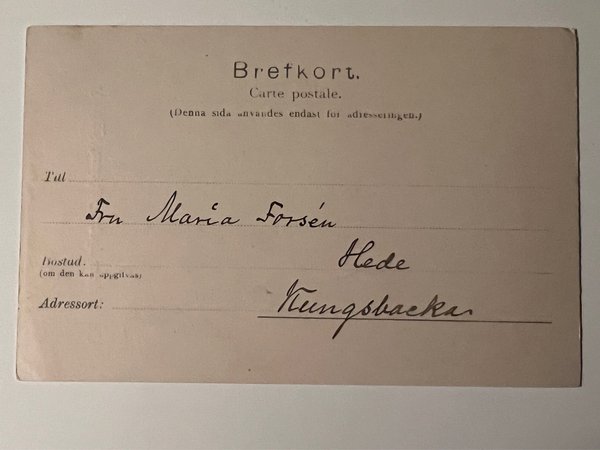 Brefkort.
Carte postale.
(Denna sida användes endast för adresseringen.)
Till
Fru Maria Forsén
Bostad.
(om den kan uppgifvas)
Hede
Adressort:
Kungsbacka